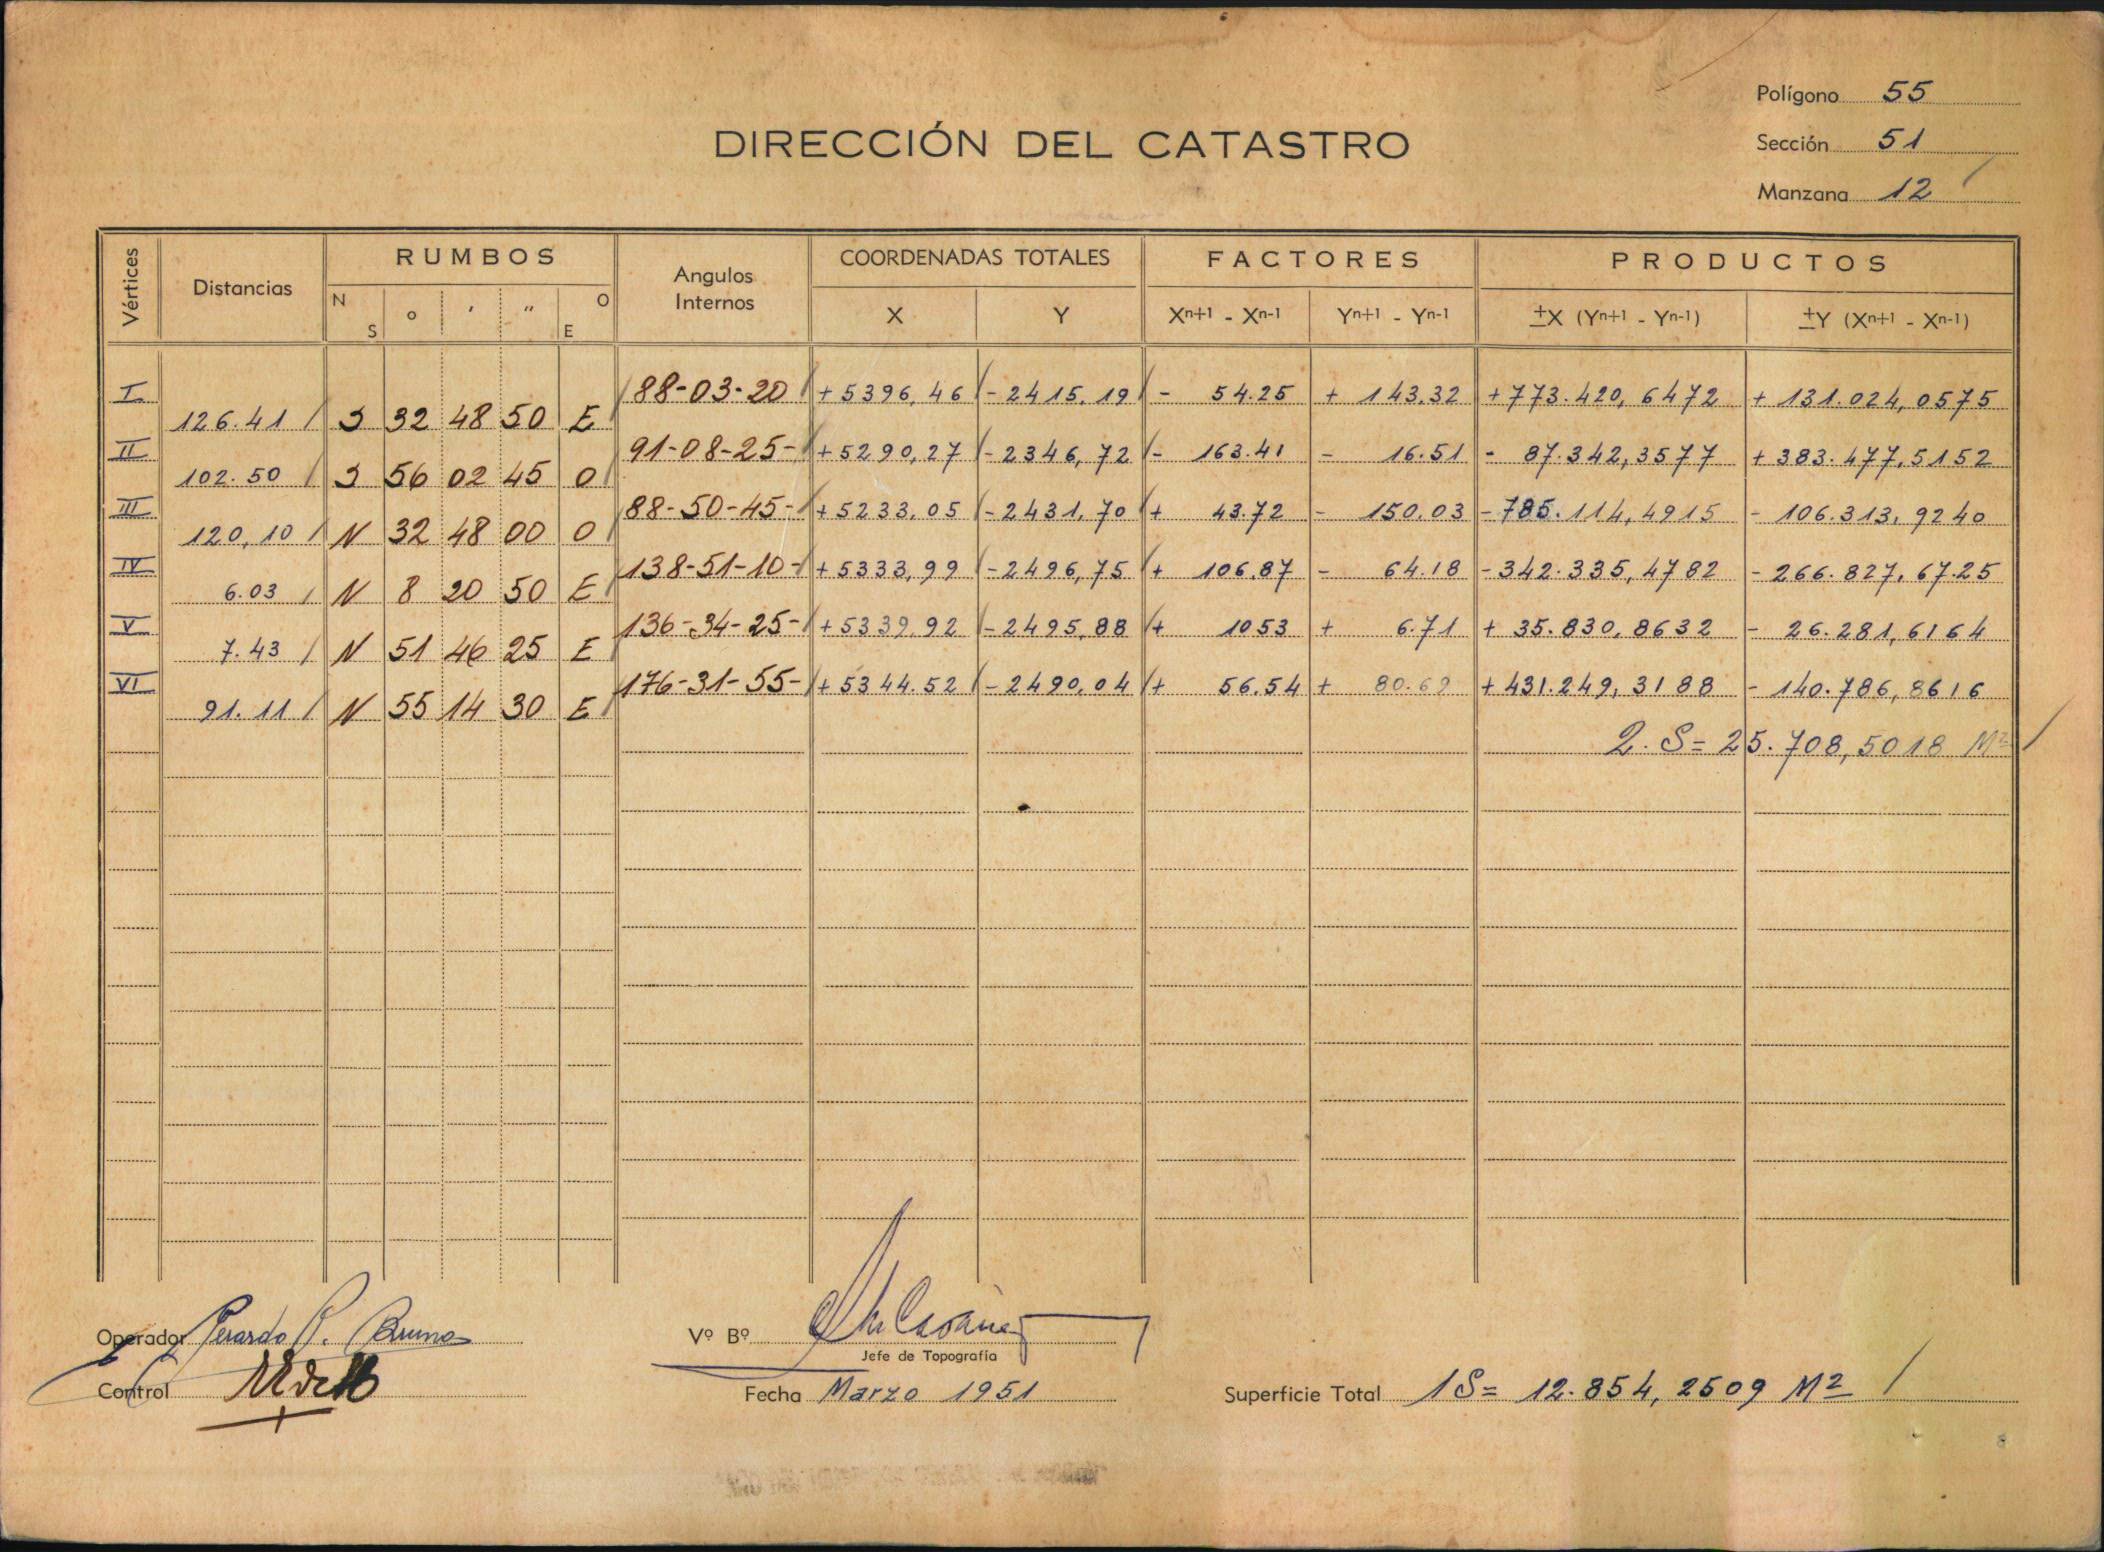 Polígono 55
DIRECCIÓN DEL CATASTRO
Sección 51
Manzana 12
Vértices Distancias RUMBOS Angulos Internos COORDENADAS TOTALES FACTORES PRODUCTOS
N S o ' " O E X Y Xn+1 - Xn-1 Yn+1 - Yn-1 ±X (Yn+1 - Yn-1) ±Y (Xn+1 - Xn-1)
I 88-03-20 +5396,46 -2415,19 - 54.25 + 143.32 +773.420,6472 +131.024,0575
126.41 S 32 48 50 E
II 91-08-25- +5290,27 -2346,72 - 163.41 - 16.51 - 87.342,3577 +383.477,5152
102.50 S 56 02 45 O
III 88-50-45- +5233,05 -2431,70 + 43.72 - 150.03 -785.114,4915 - 106.313,9240
120,10 N 32 48 00 O
IV 138-51-10- +5333,99 -2496,75 + 106.87 - 64.18 -342.335,4782 - 266.827,6725
6.03 N 8 20 50 E
V 136-34-25- +5339,92 -2495,88 + 1053 + 6.71 + 35.830,8632 - 26.281,6164
7.43 N 51 46 25 E
VI 176-31-55- +5344.52 -2490,04 + 56.54 + 80.69 +431.249,3188 - 140.786,8616
91.11 N 55 14 30 E
2.S= 25.708,5018 M2
Operador Gerardo R. Bruno
Vº Bº
Jefe de Topografía
Control
Fecha Marzo 1951
Superficie Total 1S= 12.854,2509 M2